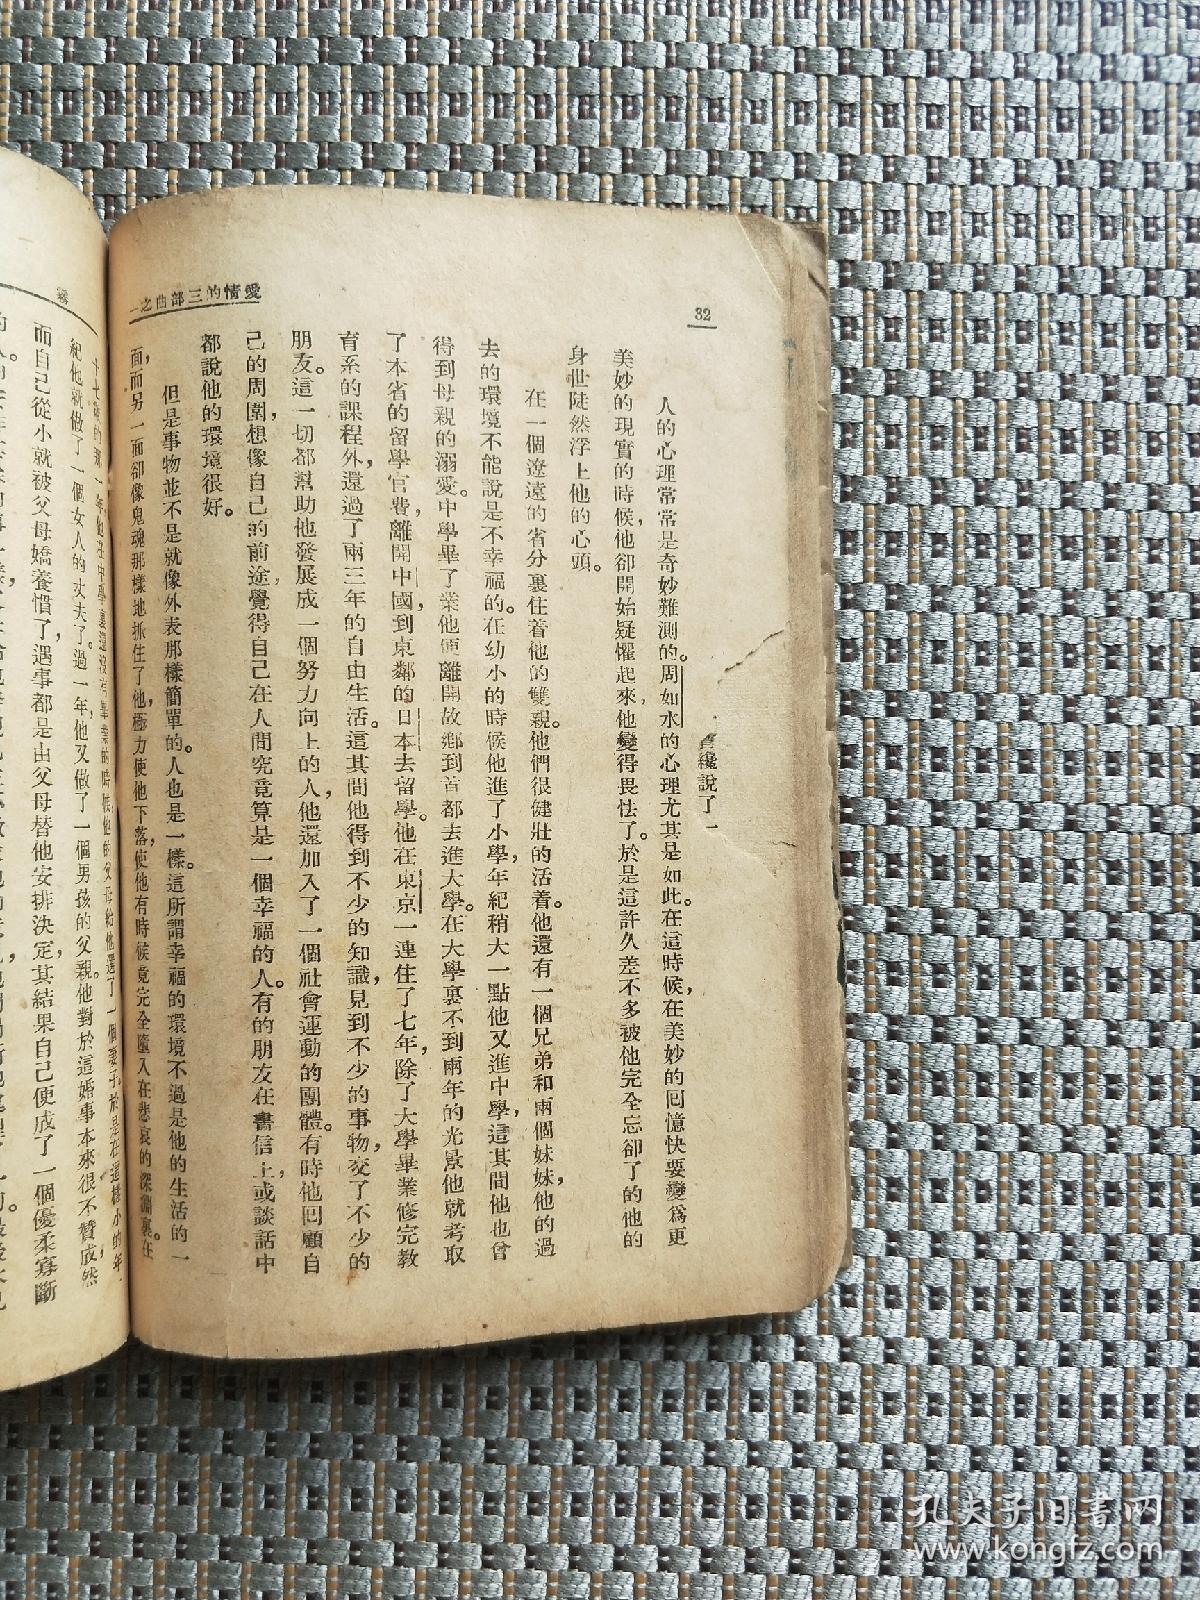 32
愛情的三部曲之一
人的心理常常是奇妙難測的。周如水的心理尤其是如此。在這時候，在美妙的回憶快要變為更
美妙的現實的時候，他卻開始疑懼起來，他變得畏怯了。於是這許久差不多被他完全忘卻了的他的
身世陡然浮上他的心頭。
在一個遼遠的省分裏住着他的雙親。他們很健壯的活着。他還有一個兄弟和兩個妹妹，他的過
去的環境不能說是不幸福的。在幼小的時候他進了小學，年紀稍大一點他又進中學，這其間他也曾
得到母親的溺愛。中學畢了業他便離開故鄉到首都去進大學。在大學裏不到兩年的光景他就考取
了本省的留學官費，離開中國，到東鄰的日本去留學。他在東京一連住了七年，除了大學畢業修完教
育系的課程外，還過了兩三年的自由生活。這其間他得到不少的知識，見到不少的事物，交了不少的
朋友。這一切都幫助他發展成一個努力向上的人，他還加入了一個社會運動的團體。有時他回顧自
己的周圍，想像自己的前途，覺得自己在人間究竟算是一個幸福的人。有的朋友在書信上，或談話中
都說他的環境很好。
但是事物並不是就像外表那樣簡單的。人也是一樣。這所謂幸福的環境不過是他的生活的一
面，而另一面卻像鬼魂那樣地抓住了他，極力使他下落，使他有時候竟完全墮入在悲哀的深淵裏。在
纔說了一
霧
年他在中學裏還沒有畢業的時候，他的父母給他選了一個妻子。於是在這樣小的年
紀他就做了一個女人的丈夫了。過一年，他又做了一個男孩的父親。他對於這婚事本來很不贊成，然
而自己從小就被父母嬌養慣了，遇事都是由父母替他安排決定，其結果自己便成了一個優柔寡斷
的人。
孔夫子旧书网
www.kongfz.com